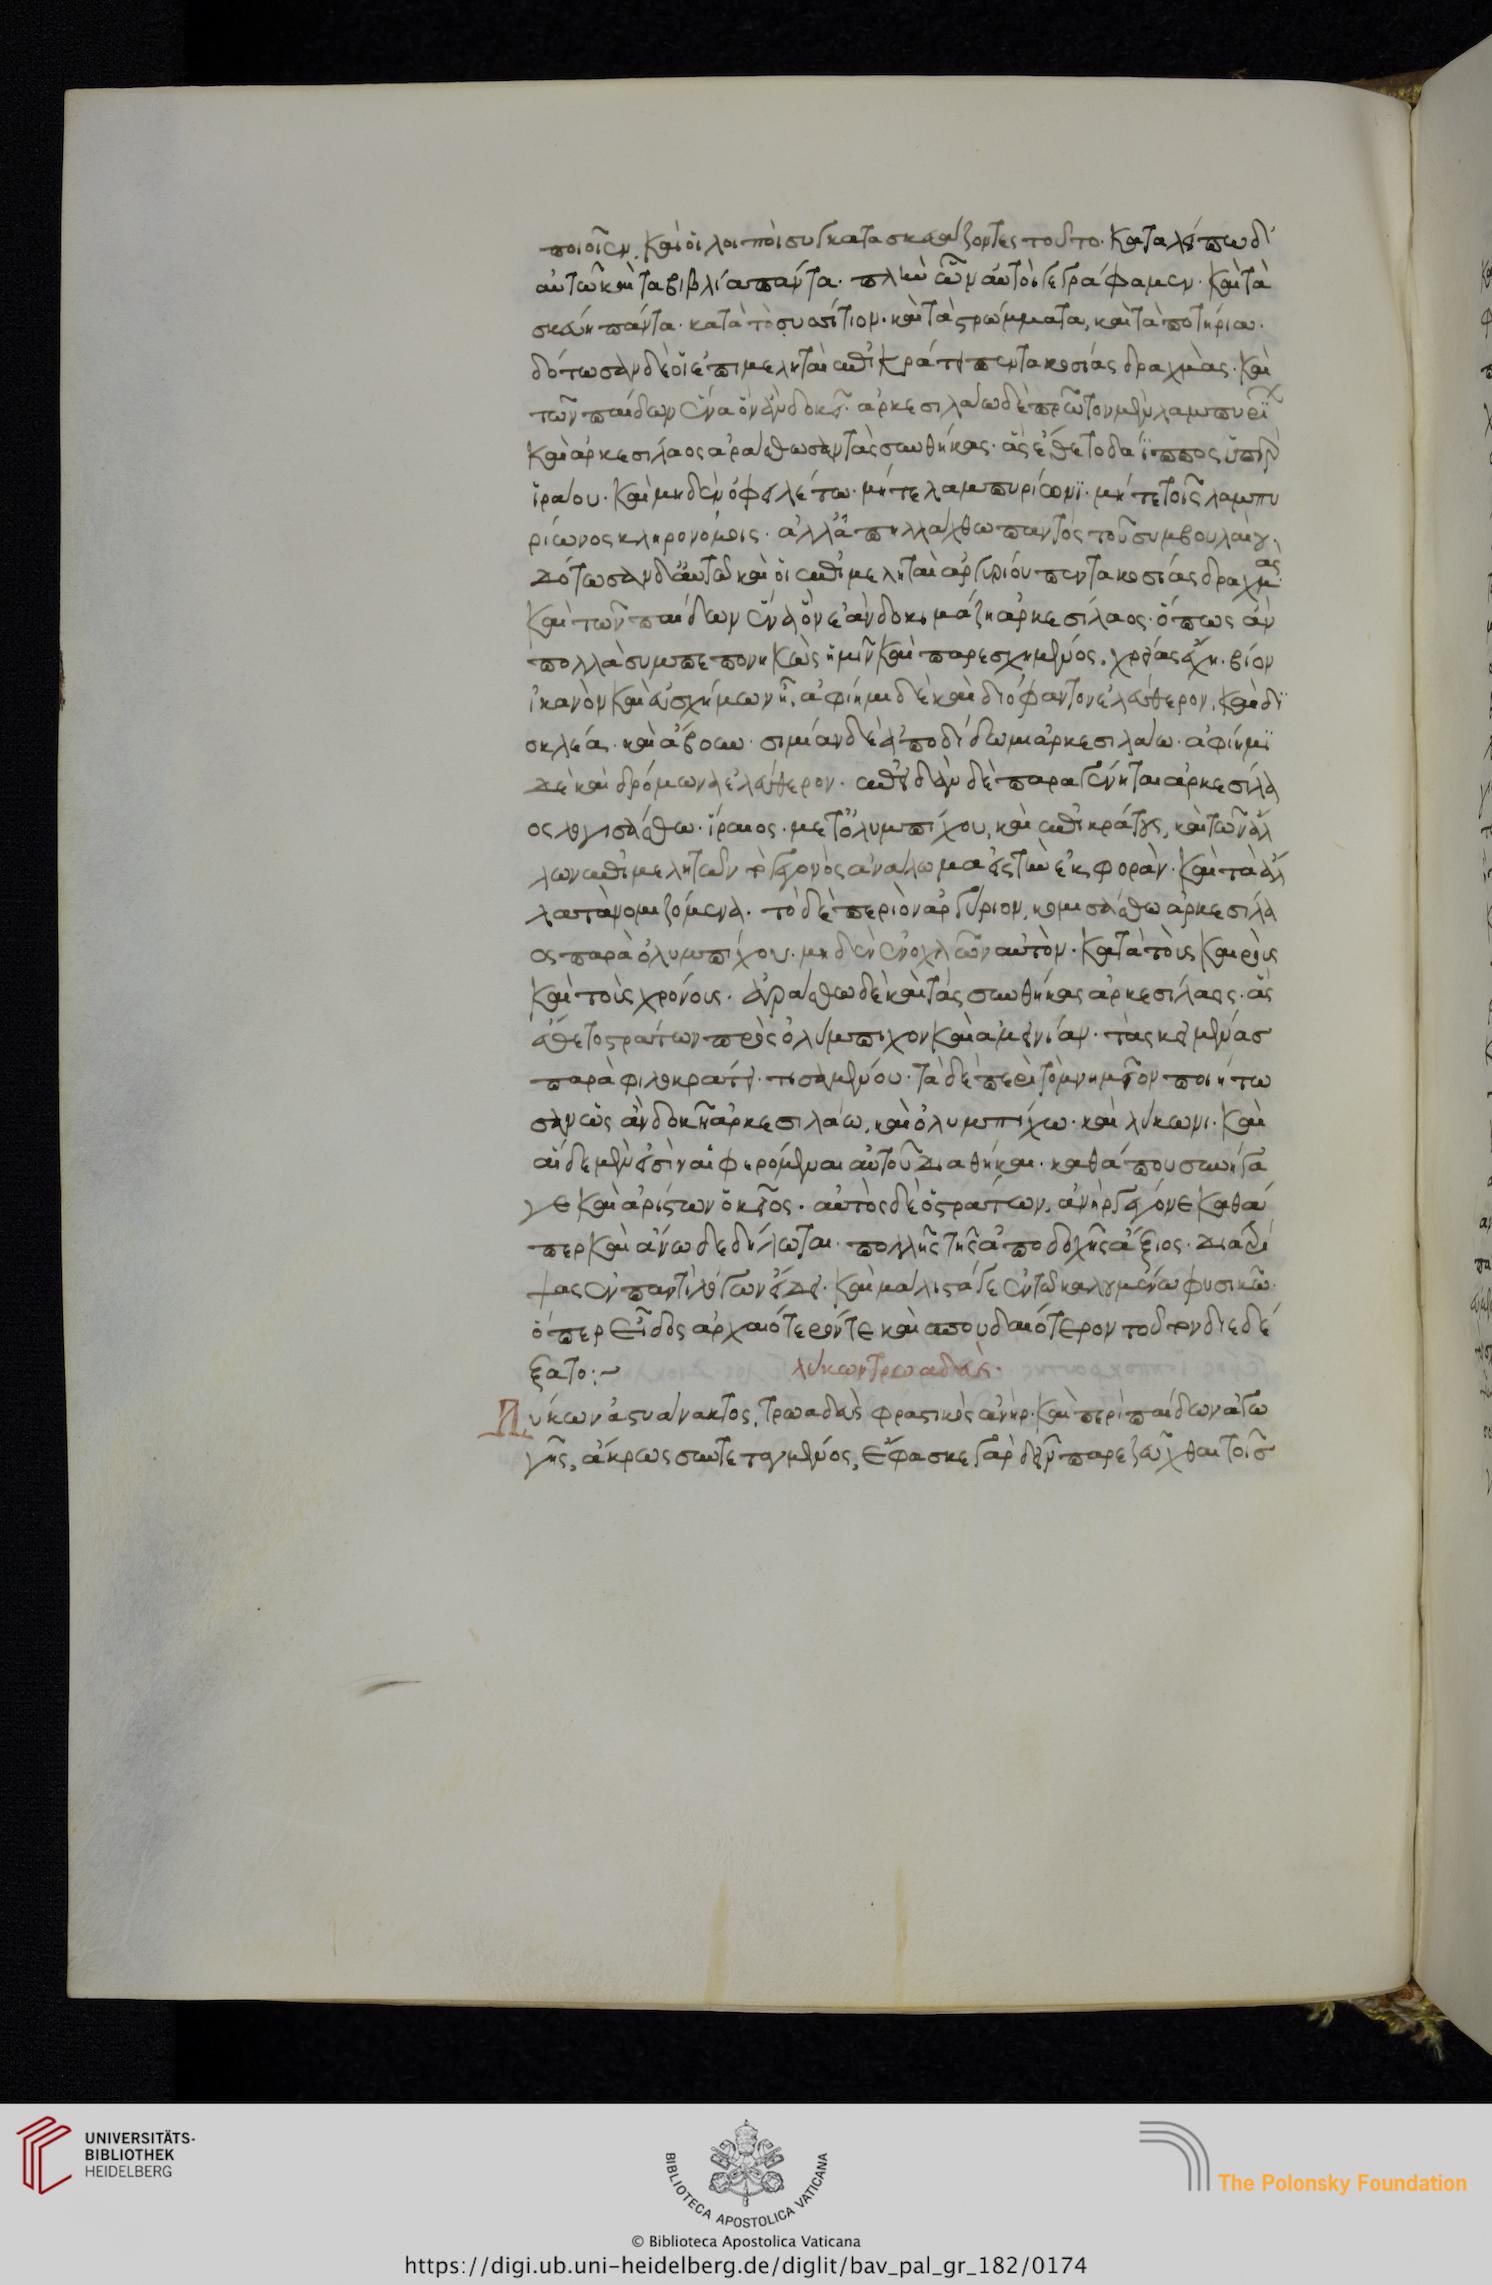 ποιοῖεν. καὶ οἱ λοιποὶ συγκατασκευάζοντες τοῦτο. καταλείπω δ'
αὐτῶ καὶ τὰ βιβλία πάντα. πλὴν ὧν αὐτοὶ γεγράφαμεν. καὶ τὰ
σκεύη πάντα. κατὰ τὸ συσίτιον. καὶ τὰ στρώμματα, καὶ τὰ ποτήρια.
δότωσαν δὲ οἱ ἐπιμεληταὶ ἐπικράτει πεντακοσίας δραχμὰς. καὶ
τῶν παίδων ἕνα ὃν ἂν δοκεῖ. ἀρκεσιλάω δὲ πρῶτον μὲν λαμπυρὶ
καὶ ἀρκεσίλαος ἀράσθωσαν τὰς συνθήκας. ἃς ἔθετο δάϊππος ὑπὲρ
ἱραίου. καὶ μηδὲν ὀφειλέτω. μήτε λαμπυρίωνι. μήτε τοῖς λαμπυ
ρίωνος κληρονόμοις. ἀλλ' ἀπηλλάχθω παντὸς τοῦ συμβουλαίου.
δότωσαν δ' αὐτῶ καὶ οἱ ἐπιμεληταὶ ἀργυρίου πεντακοσίας δραχμάς.
καὶ τῶν παίδων ἕνα ὃν ἐὰν δοκιμάζη ἀρκεσίλαος. ὅπως ἂν
πολλὰ συμπεπονηκὼς ἡμῖν καὶ παρεσχημένος. χρείας ἔχη. βίον
ἱκανὸν καὶ εὐσχήμων ἦ. ἀφίημι δὲ καὶ διόφαντον ἐλεύθερον. καὶ δι
οκλέα. καὶ ἄβουν. σιμίαν δὲ ἀποδίδωμι ἀρκεσιλάω. ἀφίημι
δὲ καὶ δρόμωνα ἐλεύθερον. ἐπειδὰν δὲ παραγένηται ἀρκεσίλα
ος λογισάσθω. ἱραιος. μετ' ὀλυμπίχου, καὶ ἐπικράτους, καὶ τῶν ἄλ
λων ἐπιμελητῶν τὸ γεγονὸς ἀνάλωμα εἰς τὴν ἐκφορὰν. καὶ τὰ ἄλ
λα τὰ νομιζόμενα. τὸ δὲ περιὸν ἀργύριον, κομισάσθω ἀρκεσίλα
ος παρὰ ὀλυμπίχου. μηδὲν ἐνοχλῶν αὐτὸν. κατὰ τοὺς καιροὺς
καὶ τοὺς χρόνους. ἀράσθω δὲ καὶ τὰς συνθήκας ἀρκεσίλαος. ἃς
ἔθετο στράτων πρὸς ὀλύμπιχον καὶ ἀμεινίαν. τὰς κειμένας
παρὰ φιλοκράτει. τισαμένου. τὰ δὲ περὶ τὸ μνημεῖον ποιήτω
σαν ὡς ἂν δοκῆ ἀρκεσιλάω, καὶ ὀλυμπίχω. καὶ λύκωνι. καὶ
αἵδε μέν εἰσὶν αἱ φερόμεναι αὐτοῦ διαθῆκαι. καθά που συνήγα
γε καὶ ἀρίστων ὁ κεῖος. αὐτὸς δὲ ὁ στράτων, ἀνὴρ γέγονε καθά
περ καὶ ἄνω δεδήλωται. πολλῆς τῆς ἀποδοχῆς ἄξιος. διατρί
ψας ἐν παντὶ λόγων εἴδει. καὶ μάλιστά γε ἐν τῶ καλουμένω φυσικῶ.
ὅπερ εἶδος ἀρχαιότερόν τε καὶ σπουδαιότερον τοῦτον διεδέ
ξατο:~
λύκων τρωαδεὺς.
Λύκων ἀστυάνακτος, τρωαδεὺς φραστικὸς ἀνήρ. καὶ περὶ παίδων ἀγω
γῆς, ἄκρως συντεταγμένος, ἔφασκε γὰρ δεῖν παρεζεῦχθαι τοῖς
UNIVERSITÄTS-
BIBLIOTHEK
HEIDELBERG
BIBLIOTECA APOSTOLICA VATICANA
The Polonsky Foundation
© Biblioteca Apostolica Vaticana
https://digi.ub.uni-heidelberg.de/diglit/bav_pal_gr_182/0174